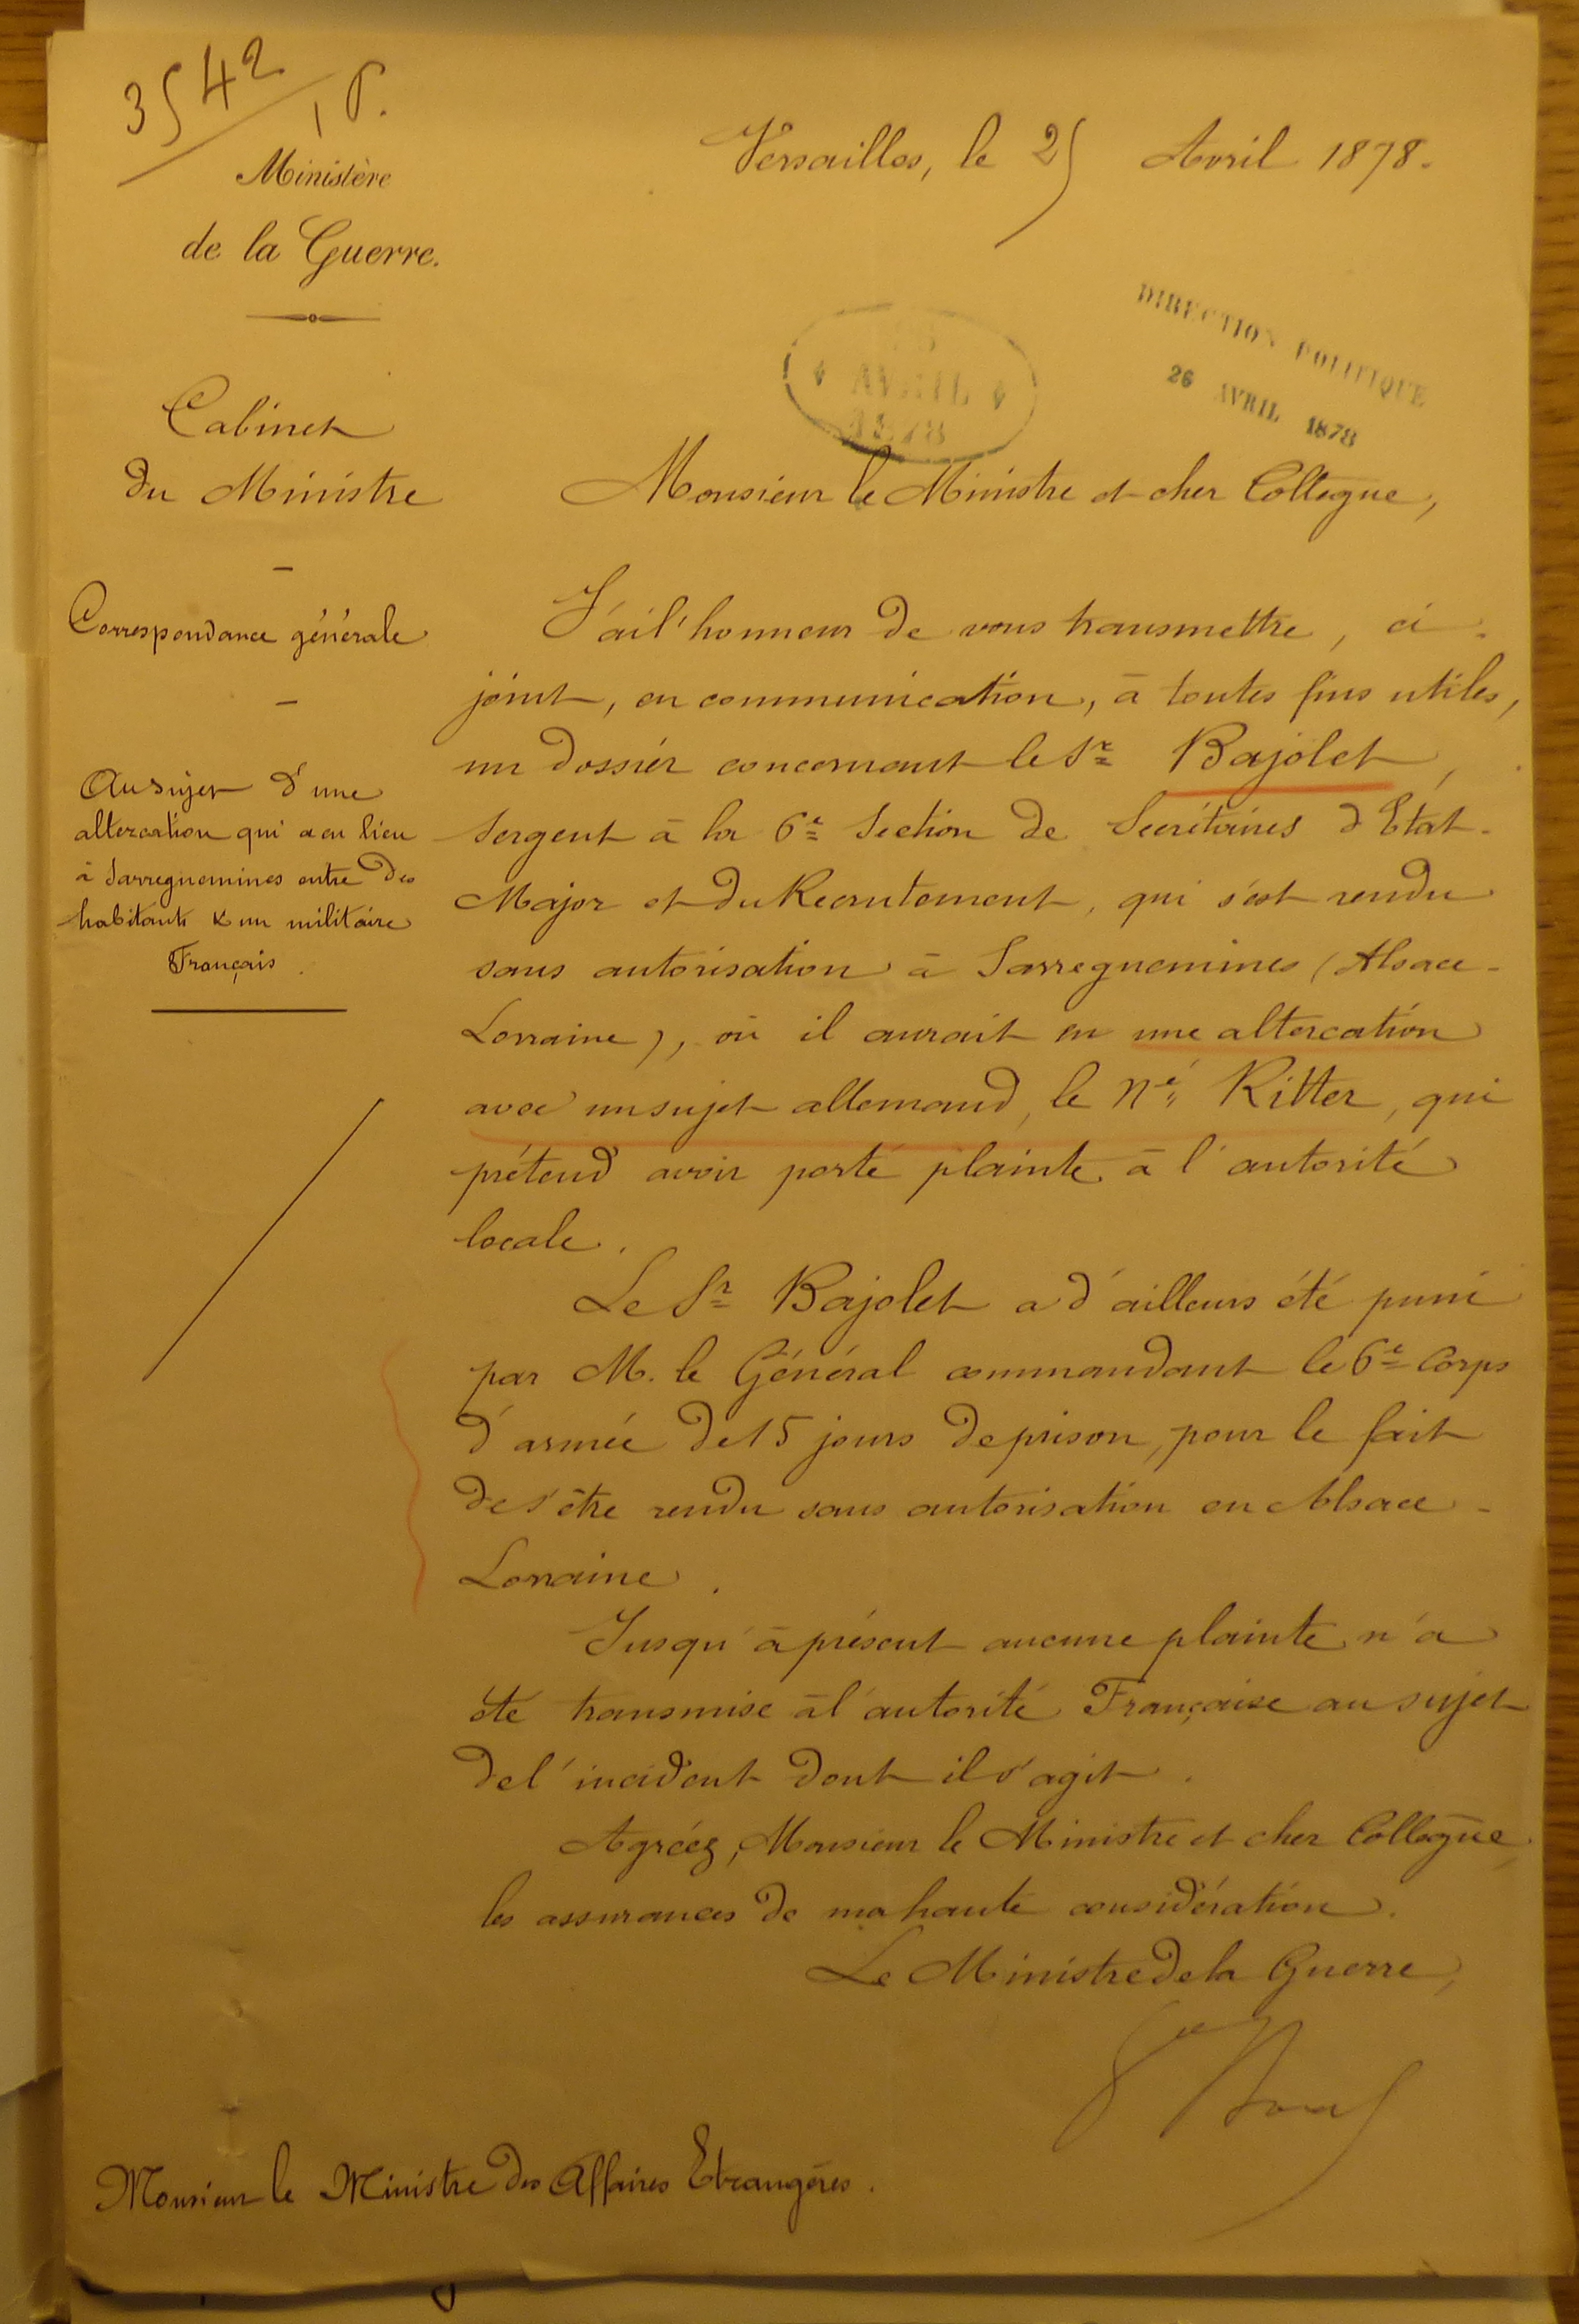 3542
1 P.
Ministère
de la Guerre.
Cabinet
du Ministre
Correspondance générale
Au sujet d'une
altercation qui a eu lieu
à Sarreguemines entre des
habitants & un militaire
Français.
Versailles, le 25 Avril 1878.
AVRIL
1878
DIRECTION POLITIQUE
26 AVRIL 1878
Monsieur le Ministre et cher Collègue,
J'ai l'honneur de vous transmettre, ci-
joint, en communication, à toutes fins utiles,
un dossier concernant le Sr Bajolet,
Sergent à la 6e Section de Secrétaires d'Etat-
Major et du Recrutement, qui s'est rendu
sans autorisation à Sarreguemines (Alsace-
Lorraine), où il aurait eu une altercation
avec un sujet allemand, le né Ritter, qui
prétend avoir porté plainte à l'autorité
locale.
Le Sr Bajolet a d'ailleurs été puni
par M. le Général commandant le 6e Corps
d'armée de 15 jours de prison, pour le fait
de s'être rendu sans autorisation en Alsace-
Lorraine.
Jusqu'à présent aucune plainte n'a
été transmise à l'autorité Française au sujet
de l'incident dont il s'agit.
Agréez, Monsieur le Ministre et cher Collègue,
les assurances de ma haute considération.
Le Ministre de la Guerre,
Monsieur le Ministre des Affaires Etrangères.